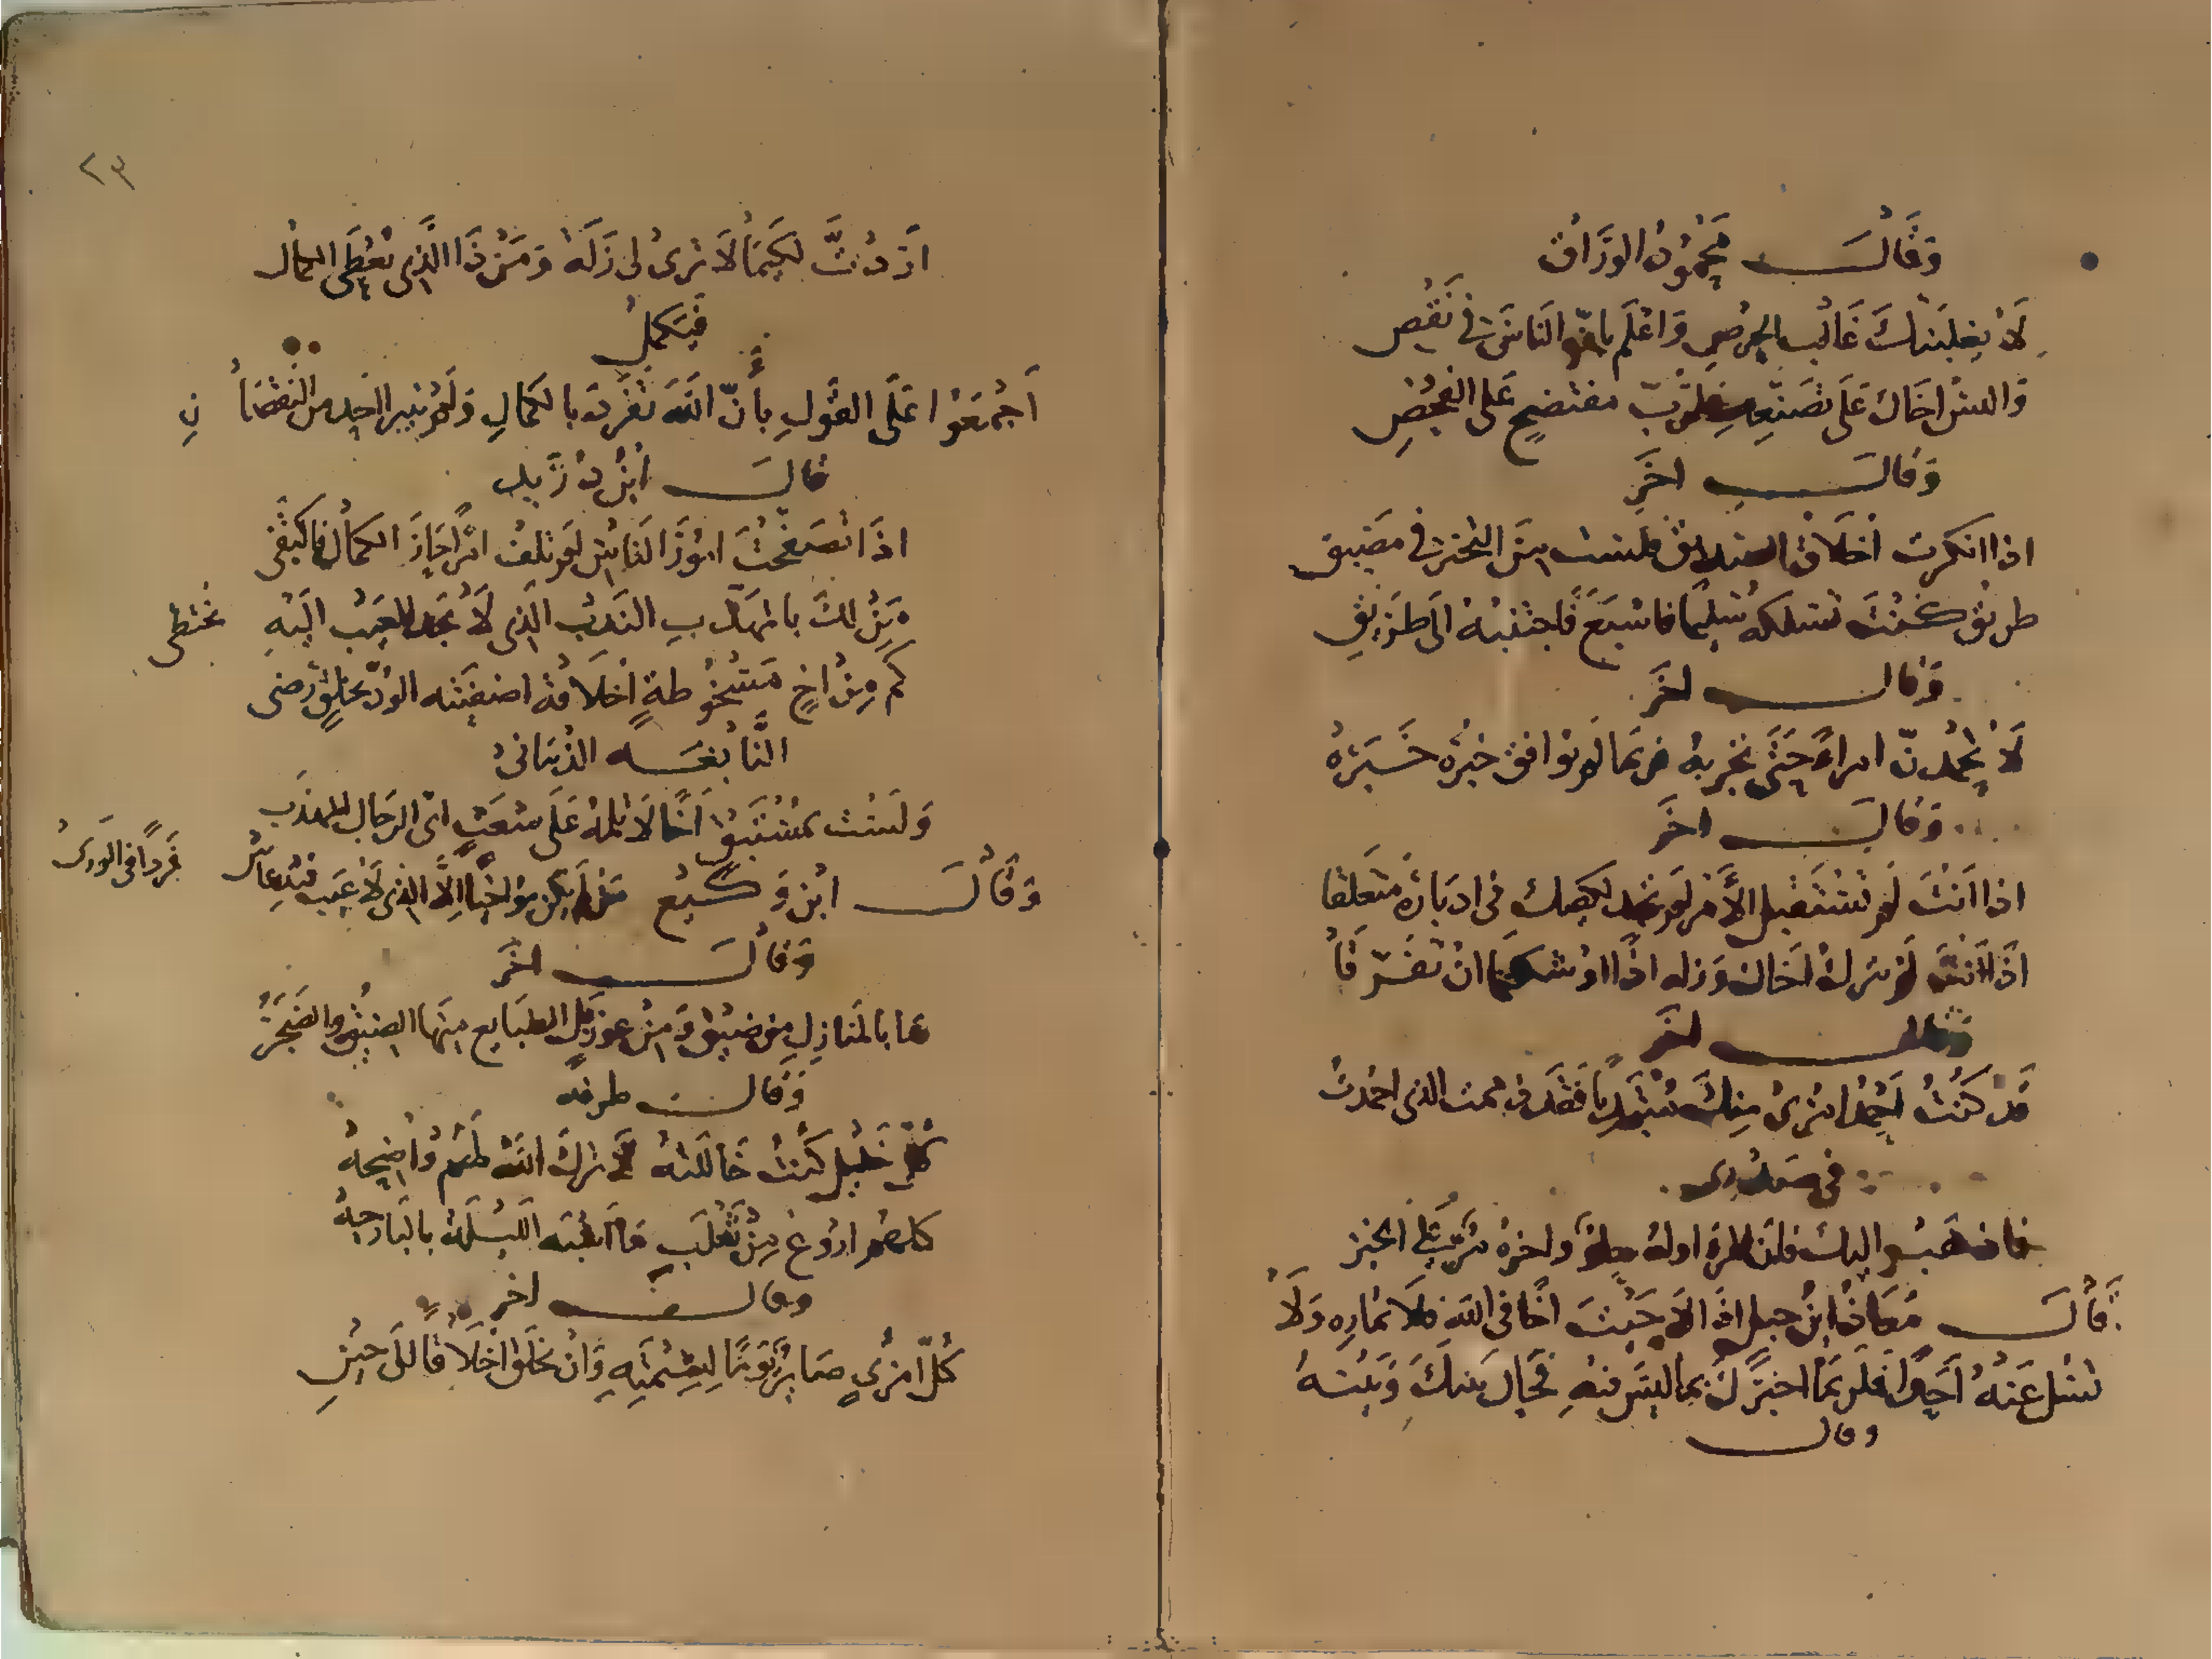 وَقَالَ مَحْمُودُ الوَرَّاق
لَا يغلبنك غالب الحرص وَاعْلَم بان الناس في نقص
وَالبس اخاك عَلَى تصنعه فلرب مفتضح على الفحص
وَقَالَ اخَر
اذا انكرت اخلاق الصديق فلست من التحير في مضيق
طريق كنت تسلكه سليما فاسبع فاجتنبه الى طريق
وَقال اخَر
لَا تحمدنّ امراءً حَتَّى تجربه فربما لم يوافق خبره خبره
وَقال اخَر
اذا اَنْتَ لم تستقبل الأمر لم تجد لكفيك في ادباره متعلقا
اذا اَنتَ لم تترك اخاك وزلة اذا اوشكتما ان تفرقا
وقال اخر
قَد كُنْتُ اَحمد امري منك مبتديا فقد ذممت الذي احمدت
في صدري
اوله حلو واخره مر
قَالَ مُعَاذُ ابْنُ جبل اذا احببت اخًا في اللهِ فلا تماره وَلَا
تسل عَنهُ اَحَدًا فلربمَا اخبرك بما ليسَ فيهِ فحَال بَينكَ وَبَينه
وقال
٢٣
اَرَدْتَ لكيما لَا ترى لى زَلَة وَمَنْ ذَا الَّذِي يُعْطَى الكمال
فيَكملُ
اَجْمَعُوا عَلَى القَولِ بِأَنّ اللهَ تفرد بالكمال وَلم يبر احد من النقصان
قالَ ابْن دُرَيد
اذَا تصَفحتَ امُورَ النَاسِ لم تلف امرأ حاز الكمال فاكتفى
مَن لكَ بالمهذب النَدب الَذِى لَا يجد العيب اليه مختطى
كم مِنْ اخٍ مَسْخُوطةٍ اخلاقه اصفيته الودّ بخلق رضى
النَّابغه الذبيانى
وَلَسْت بمُسْتَبق اَخًا لَا تلمه عَلَى شعث اى الرجال المهذب
وَقَالَ ابْن وَكيع مَن لم يكن مؤاخيا إلا الذى لا عيب فيه عاش فَردًا في الورى
وَقَالَ اخَر
ما بالمنازل من ضيق وَمنْ عوز بل الطبايع منها الضيق والضَجَرُ
وَقال طرفه
كل خليل كُنْتُ خَاللته لا ترك اللهَ لهم وَاضِحهُ
كلهم اروغ مِنْ ثَعْلَبٍ مَا اشبه الليْلة بالبَارحِهْ
وقال اخر
كُلّ امْرِيٍ صَايرٌ يَومًا لِشيمَتِهِ وَانْ تخلق اخلاقا الى حِينِ